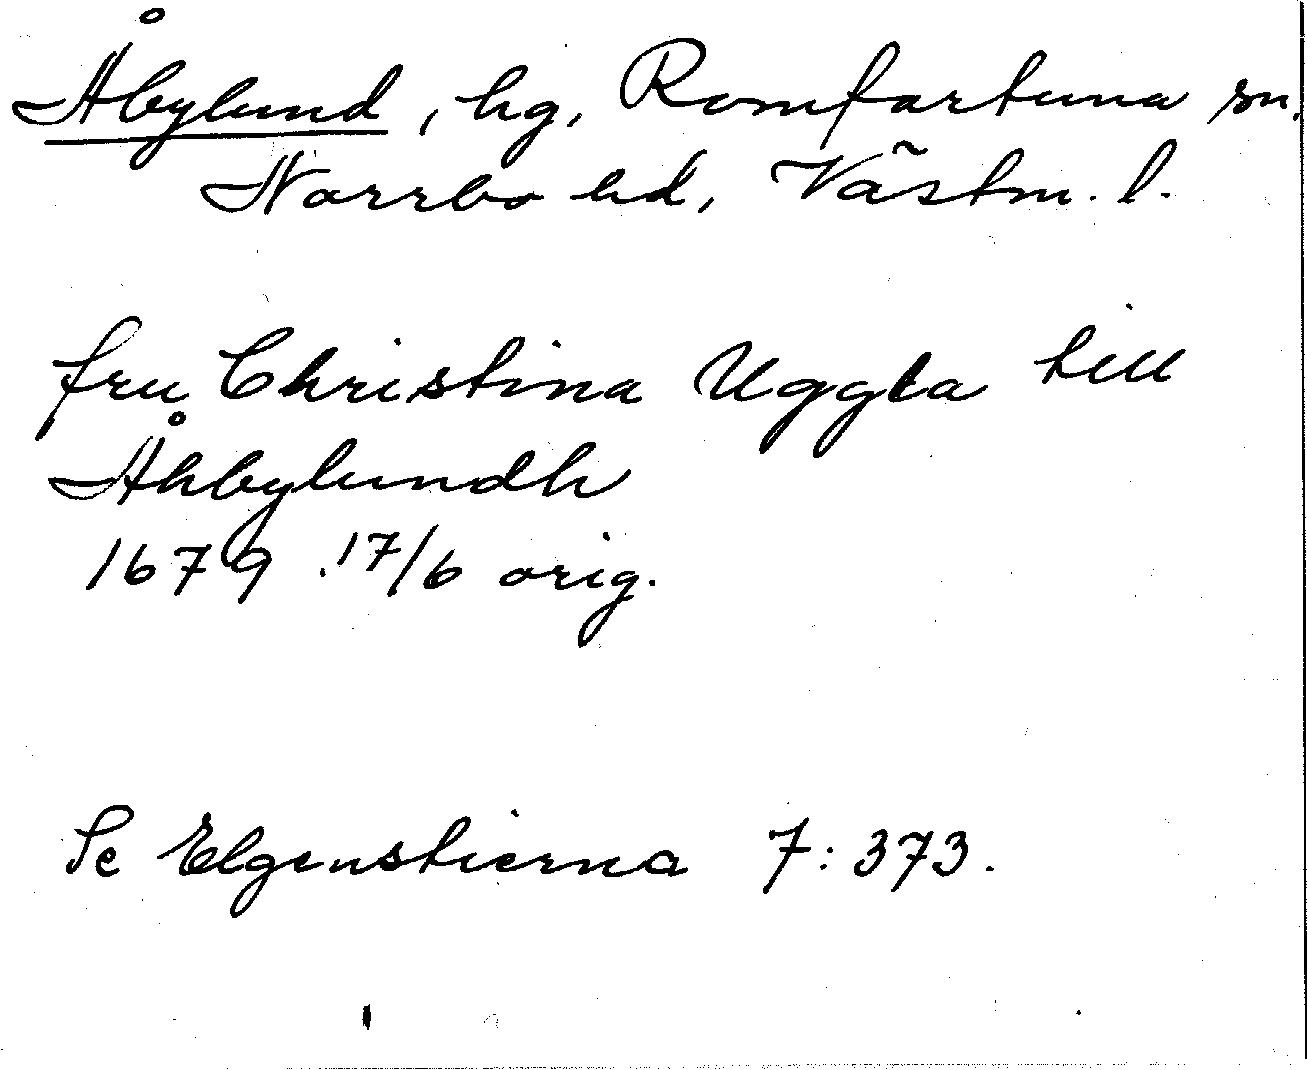 Åbylund, hg, Romfartuna sn,
Norrbo hd, Västm. l.
fru Christina Uggla till
Åhbylundh
1679 17/6 orig.
Se Elgenstierna 7:373.